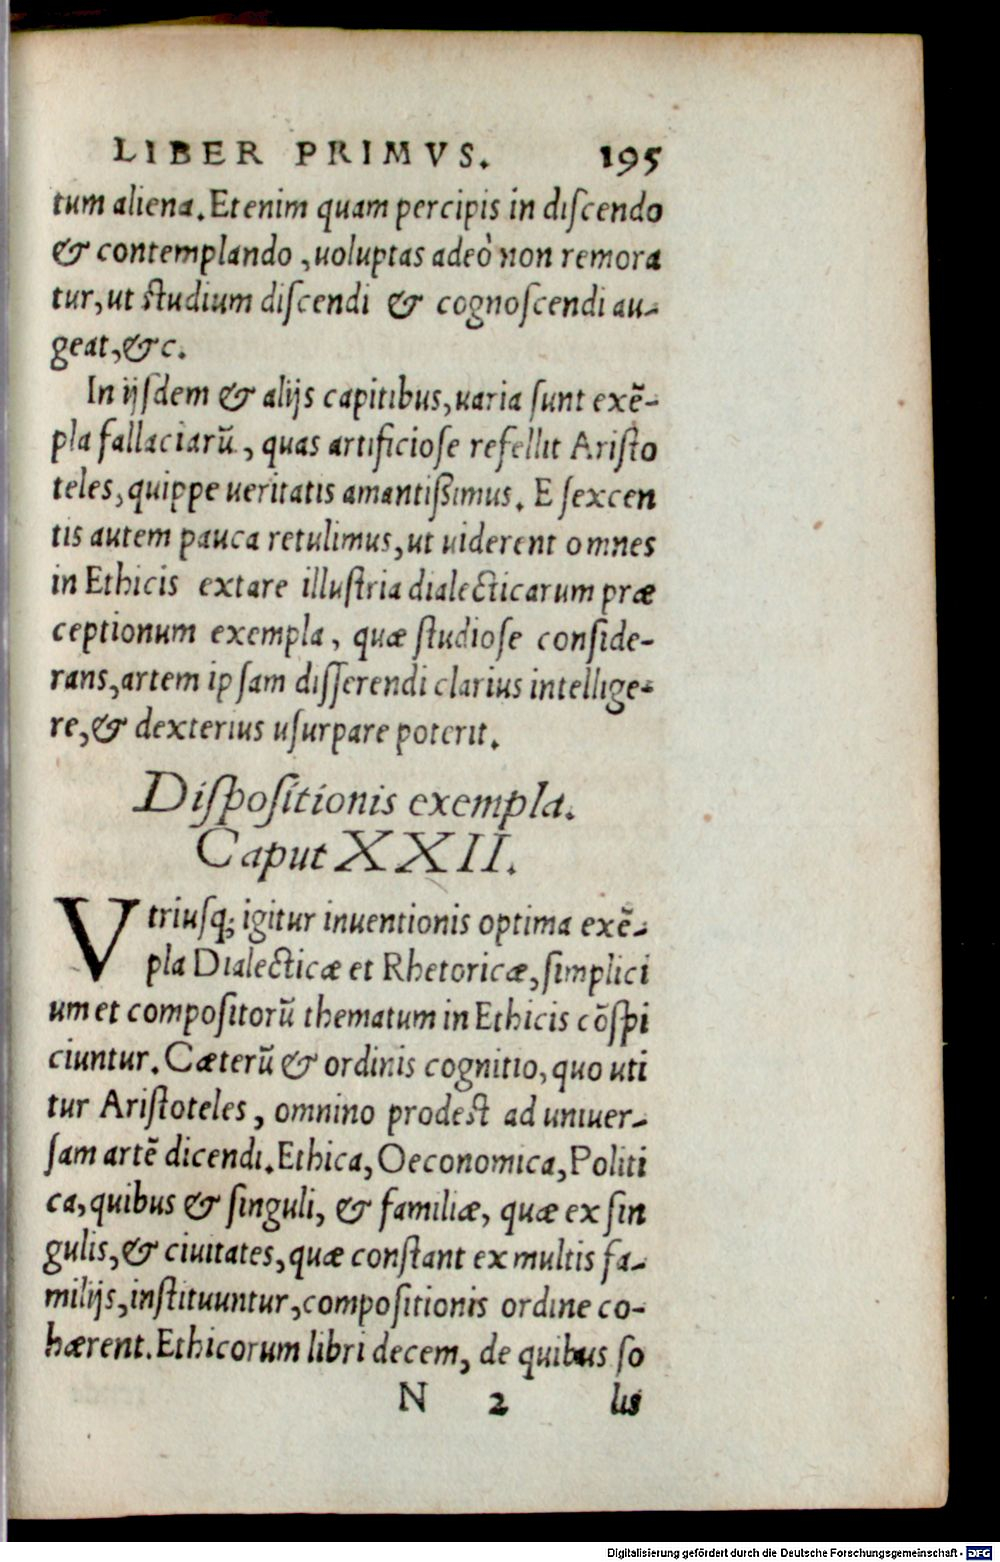 LIBER PRIMVS. 195
tum aliena. Etenim quam percipis in diſcendo
& contemplando, uoluptas adeò non remora
tur, ut ſtudium diſcendi & cognoſcendi au-
geat, &c.
In ijſdem & alijs capitibus, uaria ſunt exē-
pla fallaciarū, quas artificioſe refellit Ariſto
teles, quippe ueritatis amantiſsimus. E ſexcen
tis autem pauca retulimus, ut uiderent omnes
in Ethicis extare illuſtria dialecticarum præ
ceptionum exempla, quæ ſtudioſe conſide-
rans, artem ipſam diſſerendi clarius intellige-
re, & dexterius uſurpare poterit.
Diſpoſitionis exempla.
Caput XXII.
Vtriuſq; igitur inuentionis optima exē-
pla Dialecticæ et Rhetoricæ, ſimplici
um et compoſitorū thematum in Ethicis cōſpi
ciuntur. Cæterū & ordinis cognitio, quo uti
tur Ariſtoteles, omnino prodeſt ad uniuer-
ſam artē dicendi. Ethica, Oeconomica, Politi
ca, quibus & ſinguli, & familiæ, quæ ex ſin
gulis, & ciuitates, quæ conſtant ex multis fa-
milijs, inſtituuntur, compoſitionis ordine co-
hærent. Ethicorum libri decem, de quibus ſo
N 2 lis
Digitalisierung gefördert durch die Deutsche Forschungsgemeinschaft - DFG